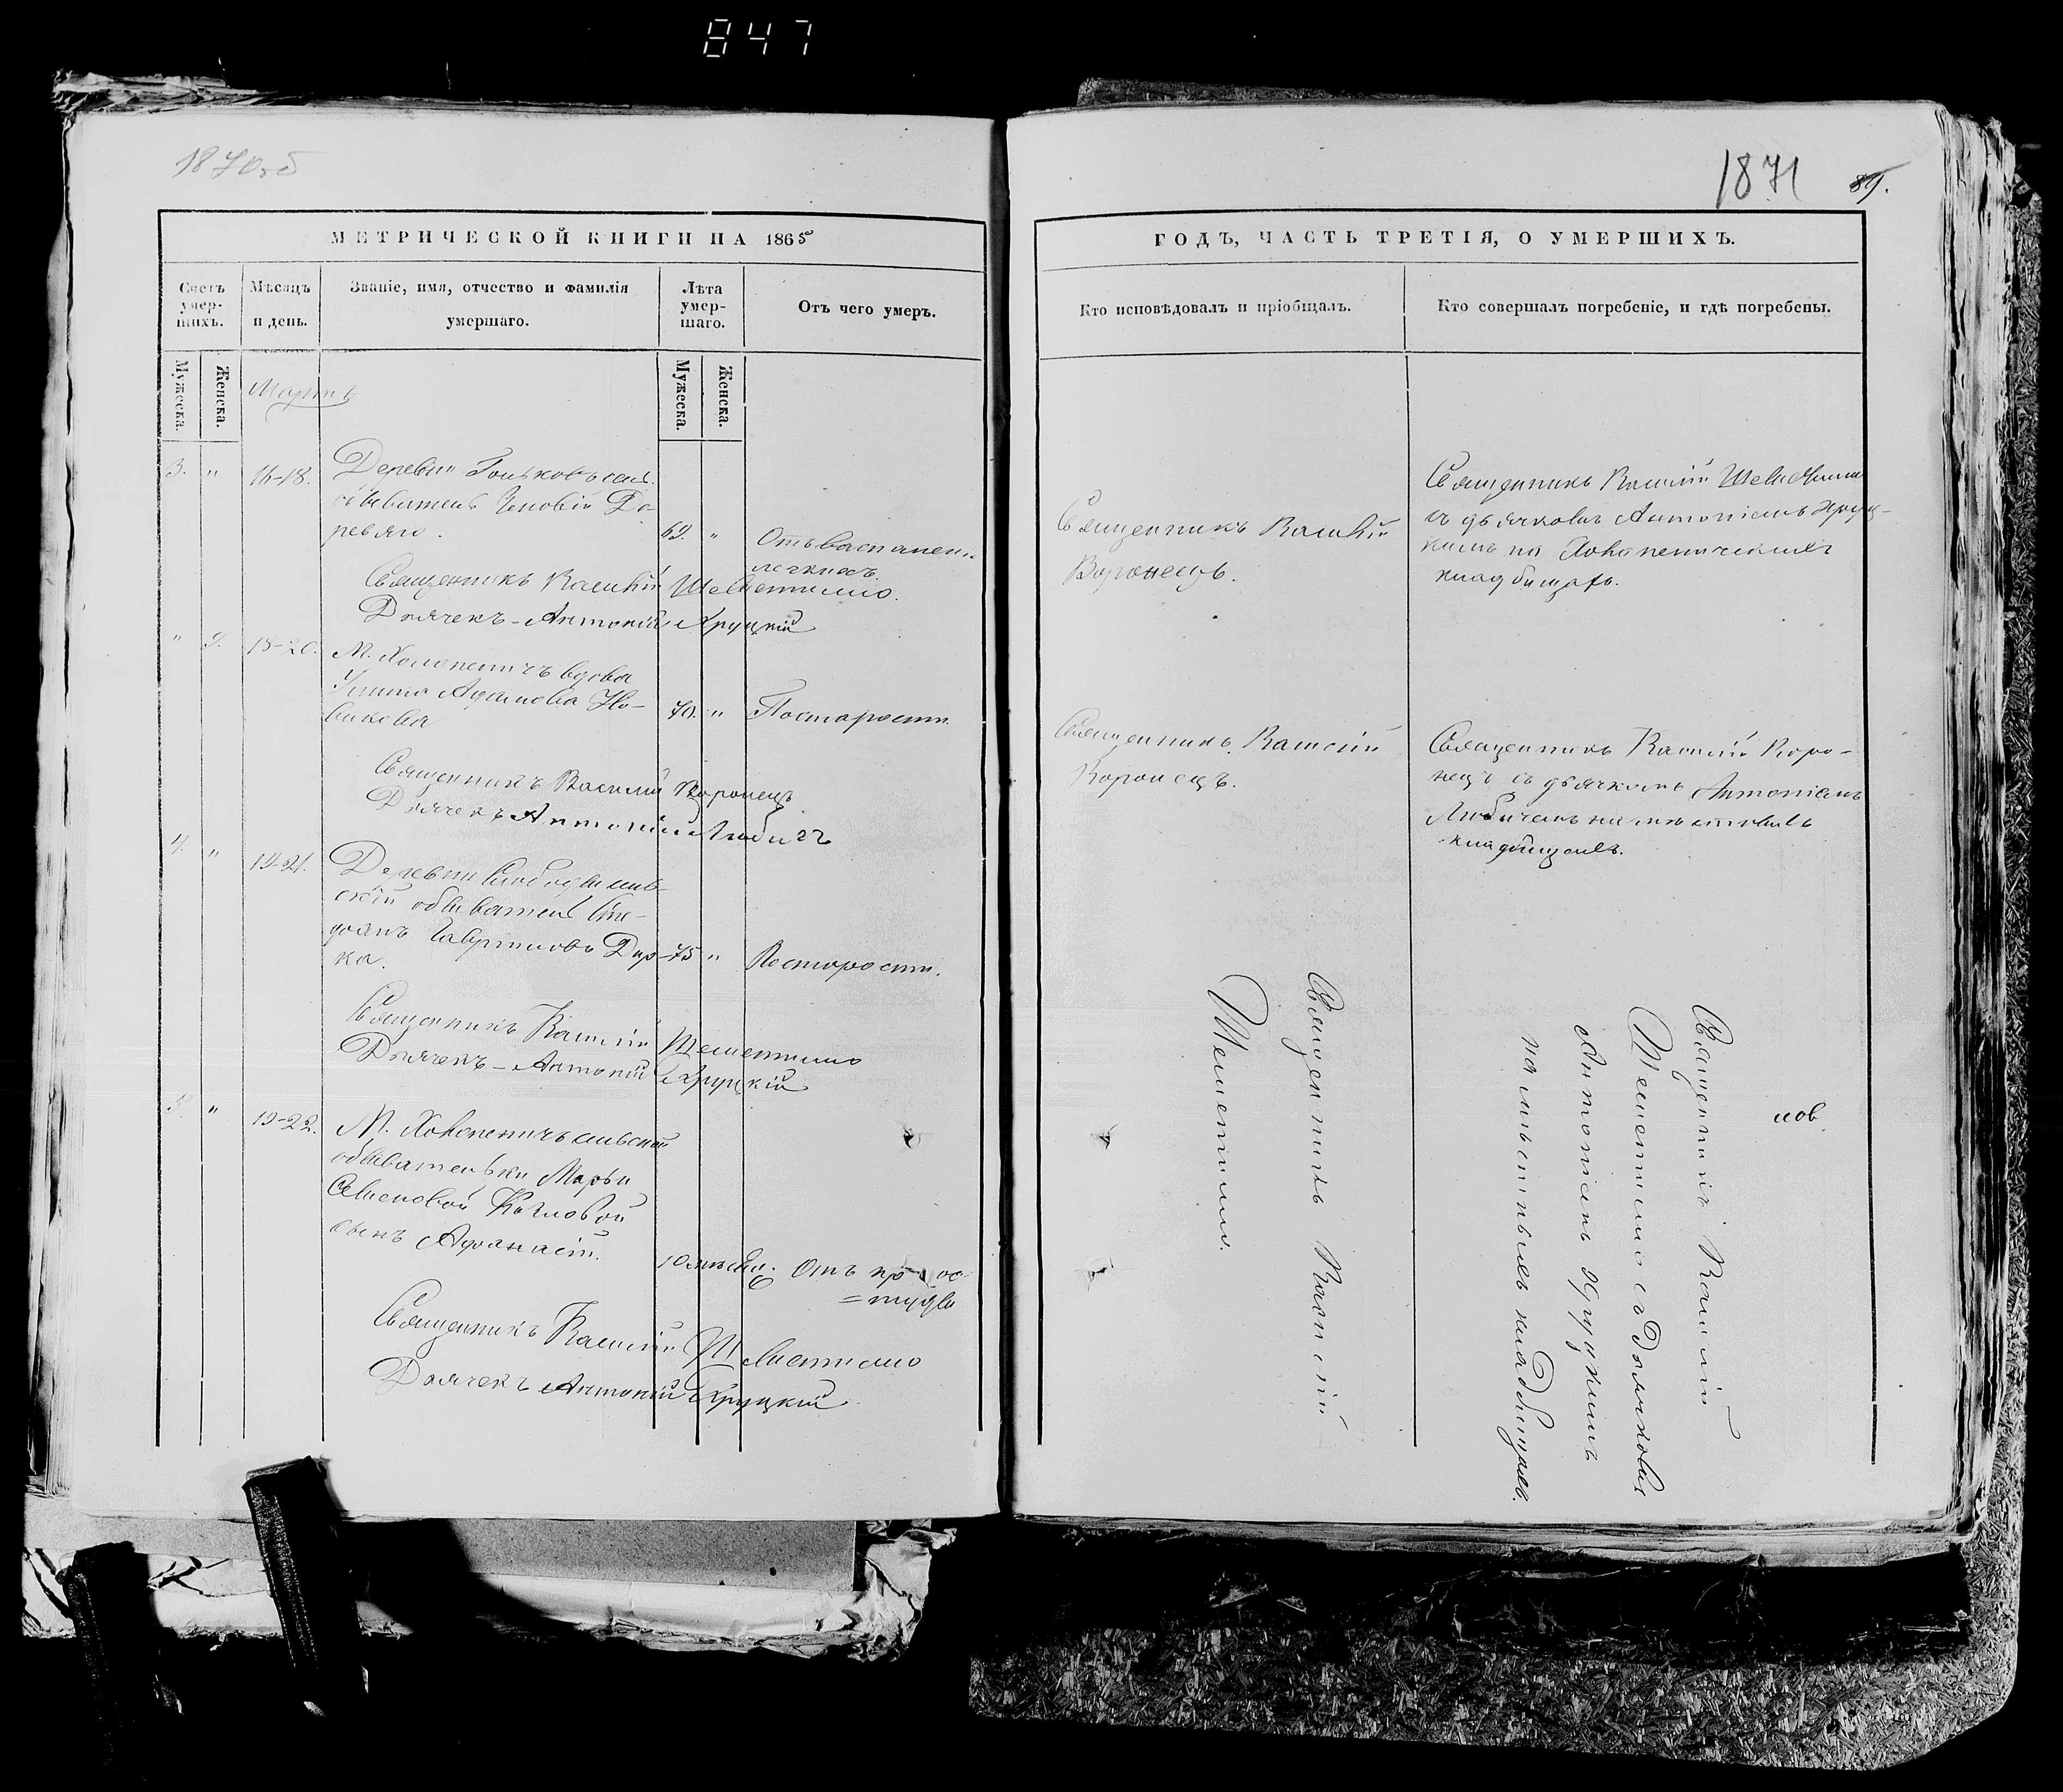 847
1870об
МЕТРИЧЕСКОЙ КНИГИ НА 1865
Счетъ умер-шихъ.
Мужеска.
Женска.
Мѣсяцъ и день.
Званіе, имя, отчество и фамилія умершаго.
Лѣта умер-шаго.
Мужеска.
Женска.
Отъ чего умеръ.
Мартъ
3. " 16-18.
Деревни
обыватель
69. "
Отъ воспален.
легкихъ.
Священникъ Василій Шеметилло.
Дьячекъ - Антоній Хруцкій
" 2. 18-20.
М. Холопеничъ вдова
Улита Адамова Но-
викова
70. " По старости.
Священникъ Василій Воронецъ
Дьячекъ Антоній Любичъ
4. " 19-21.
Деревни
обыватель
Гавриловъ
ка.
75 " По старости.
Священникъ Василій Шеметилло
Дьячекъ - Антоній Хруцкій
5. " 19-22.
М. Холопеничъ сельской
обывательки Марьи
Семеновой Козловой
сынъ Афанасій.
10 мѣсяц. Отъ прос-
=туды
Священникъ Василій Шеметилло
Дьячекъ Антоній Хруцкій
1871 89.
ГОДЪ, ЧАСТЬ ТРЕТІЯ, О УМЕРШИХЪ.
Кто исповѣдовалъ и пріобщалъ.
Кто совершалъ погребеніе, и гдѣ погребены.
Священникъ Василій
Воронецъ.
Священникъ Василій Шеметилло
съ дьячкомъ Антоніемъ Хруц-
кимъ на Холопеничскомъ
кладбищѣ.
Священникъ Василій
Воронецъ.
Священникъ Василій Воро-
нецъ съ дьячкомъ Антоніемъ
Любичемъ на мѣстномъ
кладбищѣ.
Священникъ Василій
Шеметилло.
Священникъ Василій
Шеметилло съ Дьячкомъ
Антоніемъ Хруцкимъ
на мѣстномъ кладбищѣ.